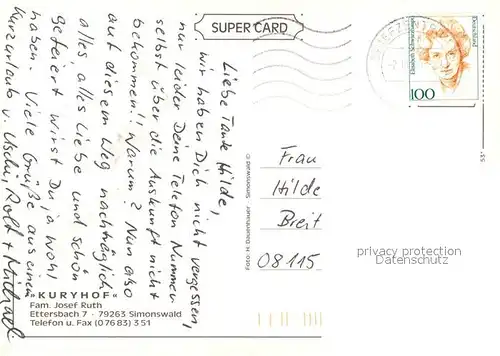 SUPER CARD
Liebe Tante Hilde,
wir haben Dich nicht vergessen,
nur leider Deine Telefon Nummer
selbst über die Auskunft nicht
bekommen!! Warum? Nun also
auf diesem Weg nachträglich
alles, alles Liebe und schön
gefeiert wirst Du ja wohl
haben. Viele Grüße aus einem
Kurzurlaub v. Uschi, Rolf + Michael
"KURYHOF"
Fam. Josef Ruth
Ettersbach 7 · 79263 Simonswald
Telefon u. Fax (07683) 351
Foto: H. Dauenhauer Simonswald ©
Elisabeth Schwarzhaupt
Deutschland
100
Frau
Hilde
Breit
08115
53
privacy protection
Datenschutz